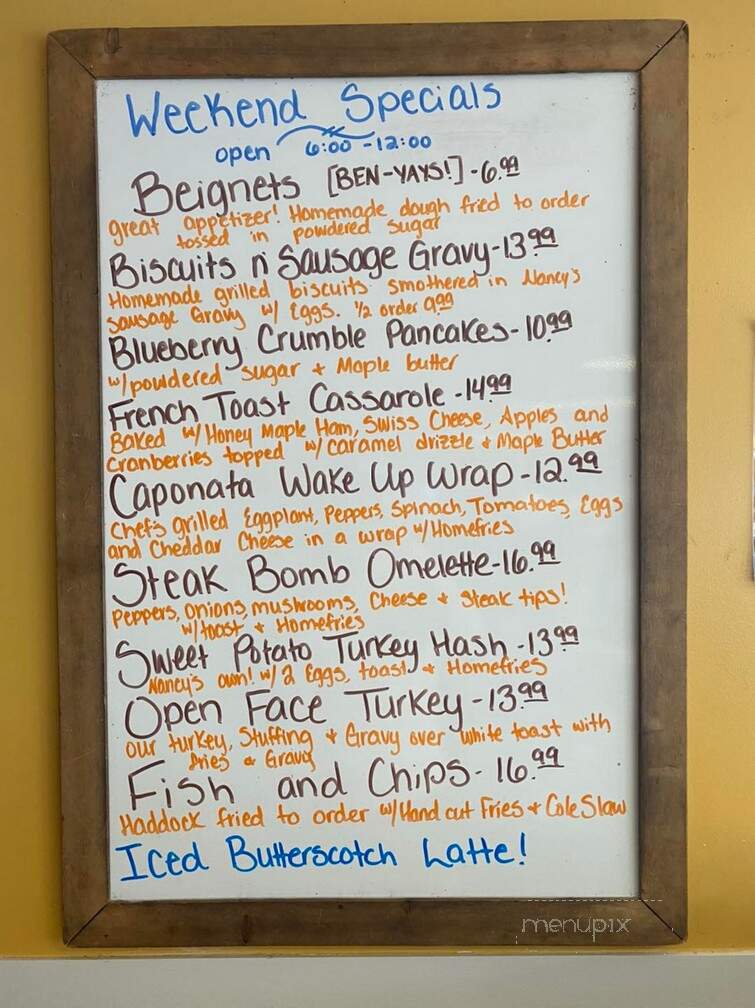 Weekend Specials
open 6:00 - 12:00
Beignets [BEN-YAYS!] - 6.99
great appetizer! Homemade dough fried to order
tossed in powdered sugar
Biscuits n' Sausage Gravy - 13.99
Homemade grilled biscuits smothered in Nancy's
Sausage Gravy w/ Eggs. 1/2 order 9.99
Blueberry Crumble Pancakes - 10.99
w/powdered sugar + Maple butter
French Toast Cassarole - 14.99
Baked w/Honey Maple Ham, Swiss Cheese, Apples and
Cranberries topped w/ caramel drizzle + Maple Butter
Caponata Wake Up Wrap - 12.99
Chef's grilled Eggplant, Peppers, Spinach, Tomatoes, Eggs
and Cheddar Cheese in a wrap w/Homefries
Steak Bomb Omelette - 16.99
Peppers, onions, mushrooms, Cheese + Steak tips!
w/toast + Homefries
Sweet Potato Turkey Hash - 13.99
Nancy's own! w/ 2 Eggs, toast + Homefries
Open Face Turkey - 13.99
our turkey, Stuffing + Gravy over white toast with
fries & Gravy
Fish and Chips - 16.99
Haddock fried to order w/Hand cut Fries + Cole Slaw
Iced Butterscotch Latte!
menupix